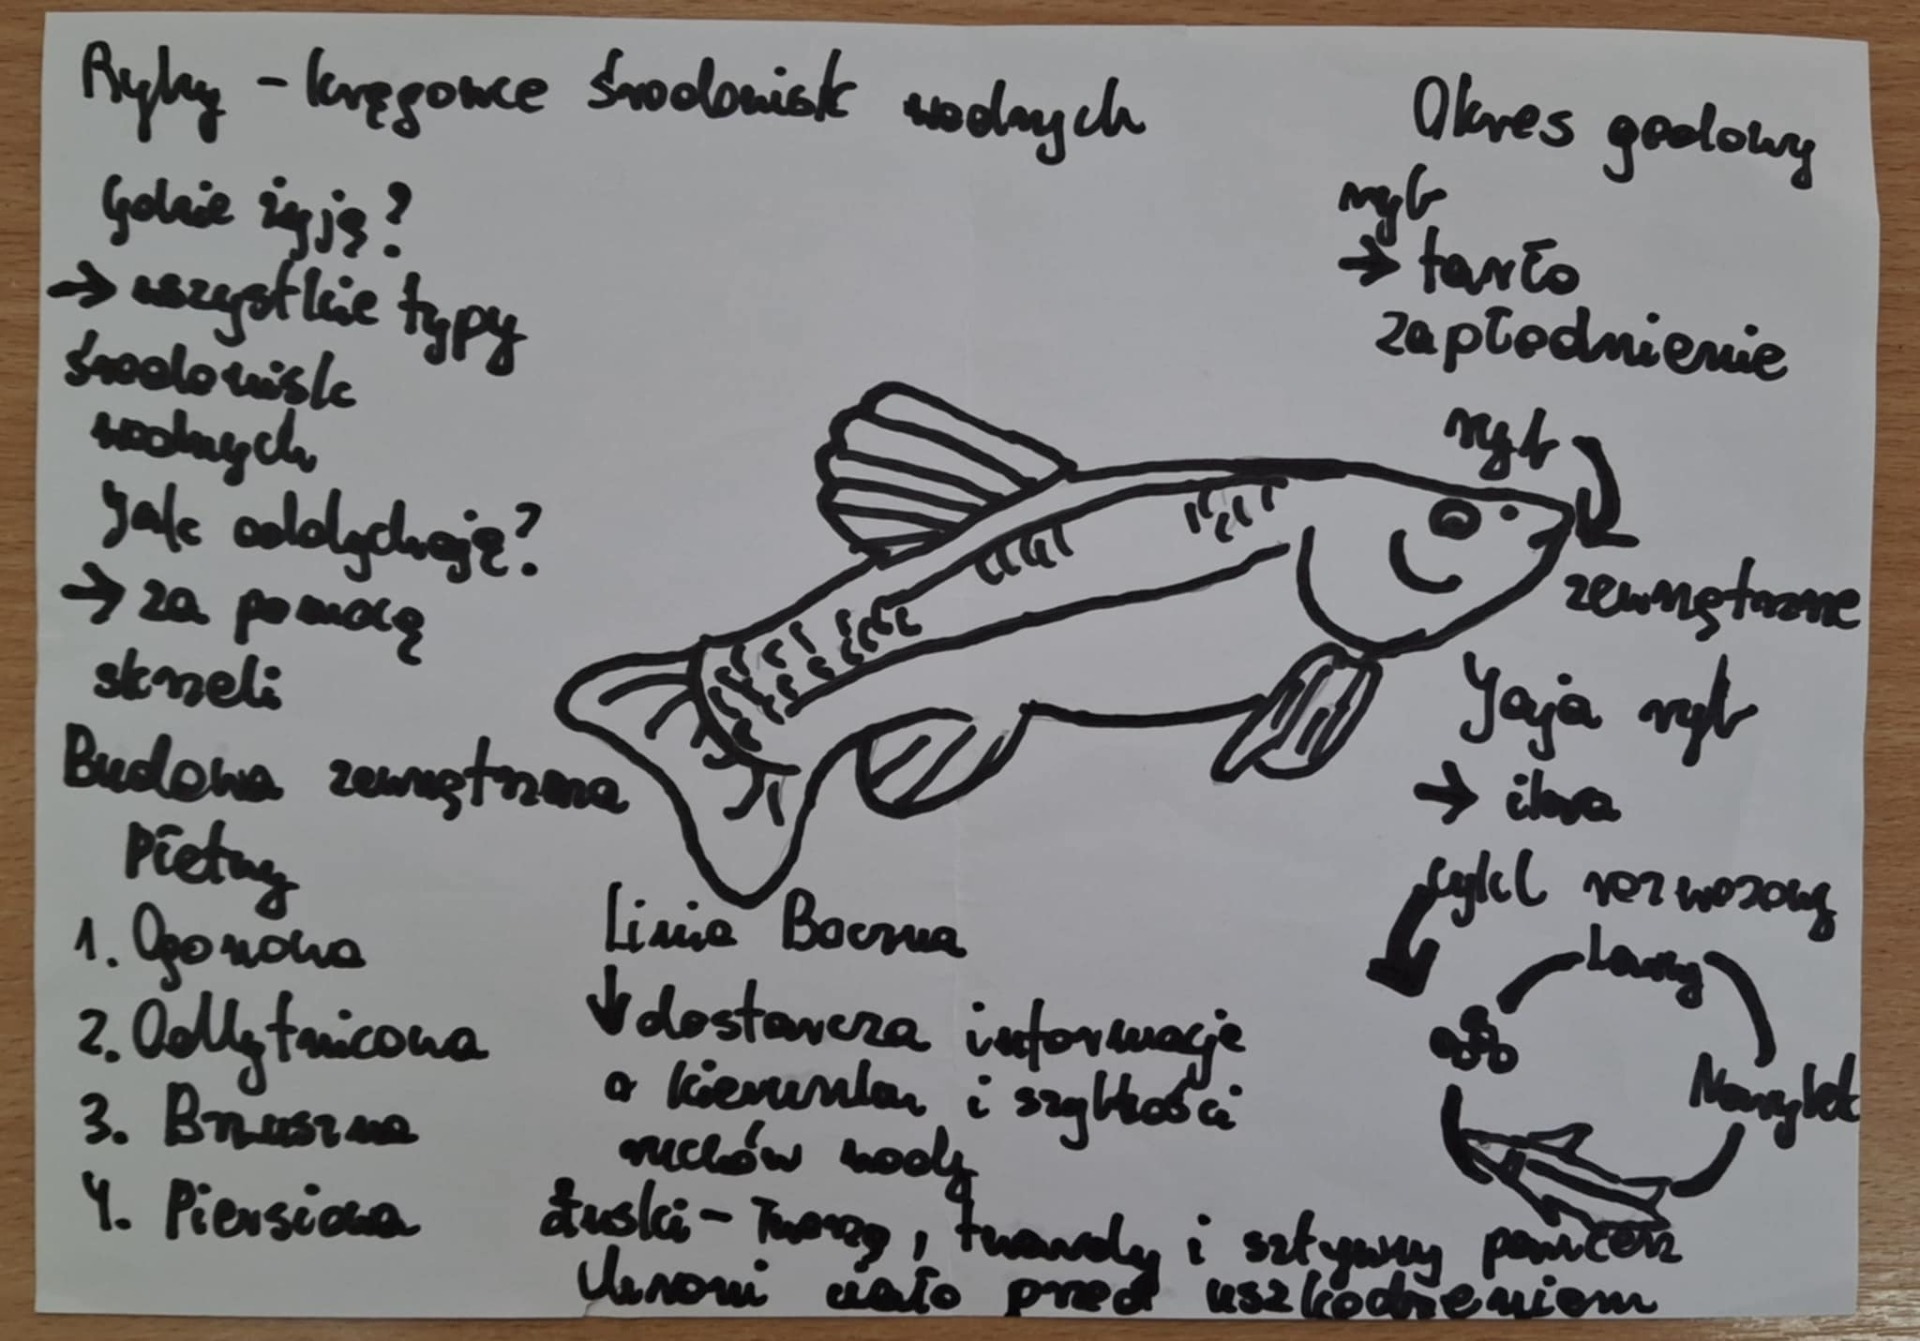 Ryby - kręgowce środowisk wodnych
Gdzie żyją?
→ wszystkie typy
środowisk
wodnych
Jak oddychają?
→ za pomocą
skrzeli
Budowa zewnętrzna
Płetwy
1. Ogonowa
2. Odbytnicowa
3. Brzuszna
4. Piersiowa
Linia Boczna
↓ dostarcza informacje
o kierunku i szybkości
ruchów wody
Łuski - Tworzą, twardy i sztywny pancerz
Chroni ciało przed uszkodzeniem
Okres godowy
ryb
→ tarło
zapłodnienie
ryb
zewnętrzne
Jaja ryb
→ ikra
cykl rozwojowy
Larwy
Narybek